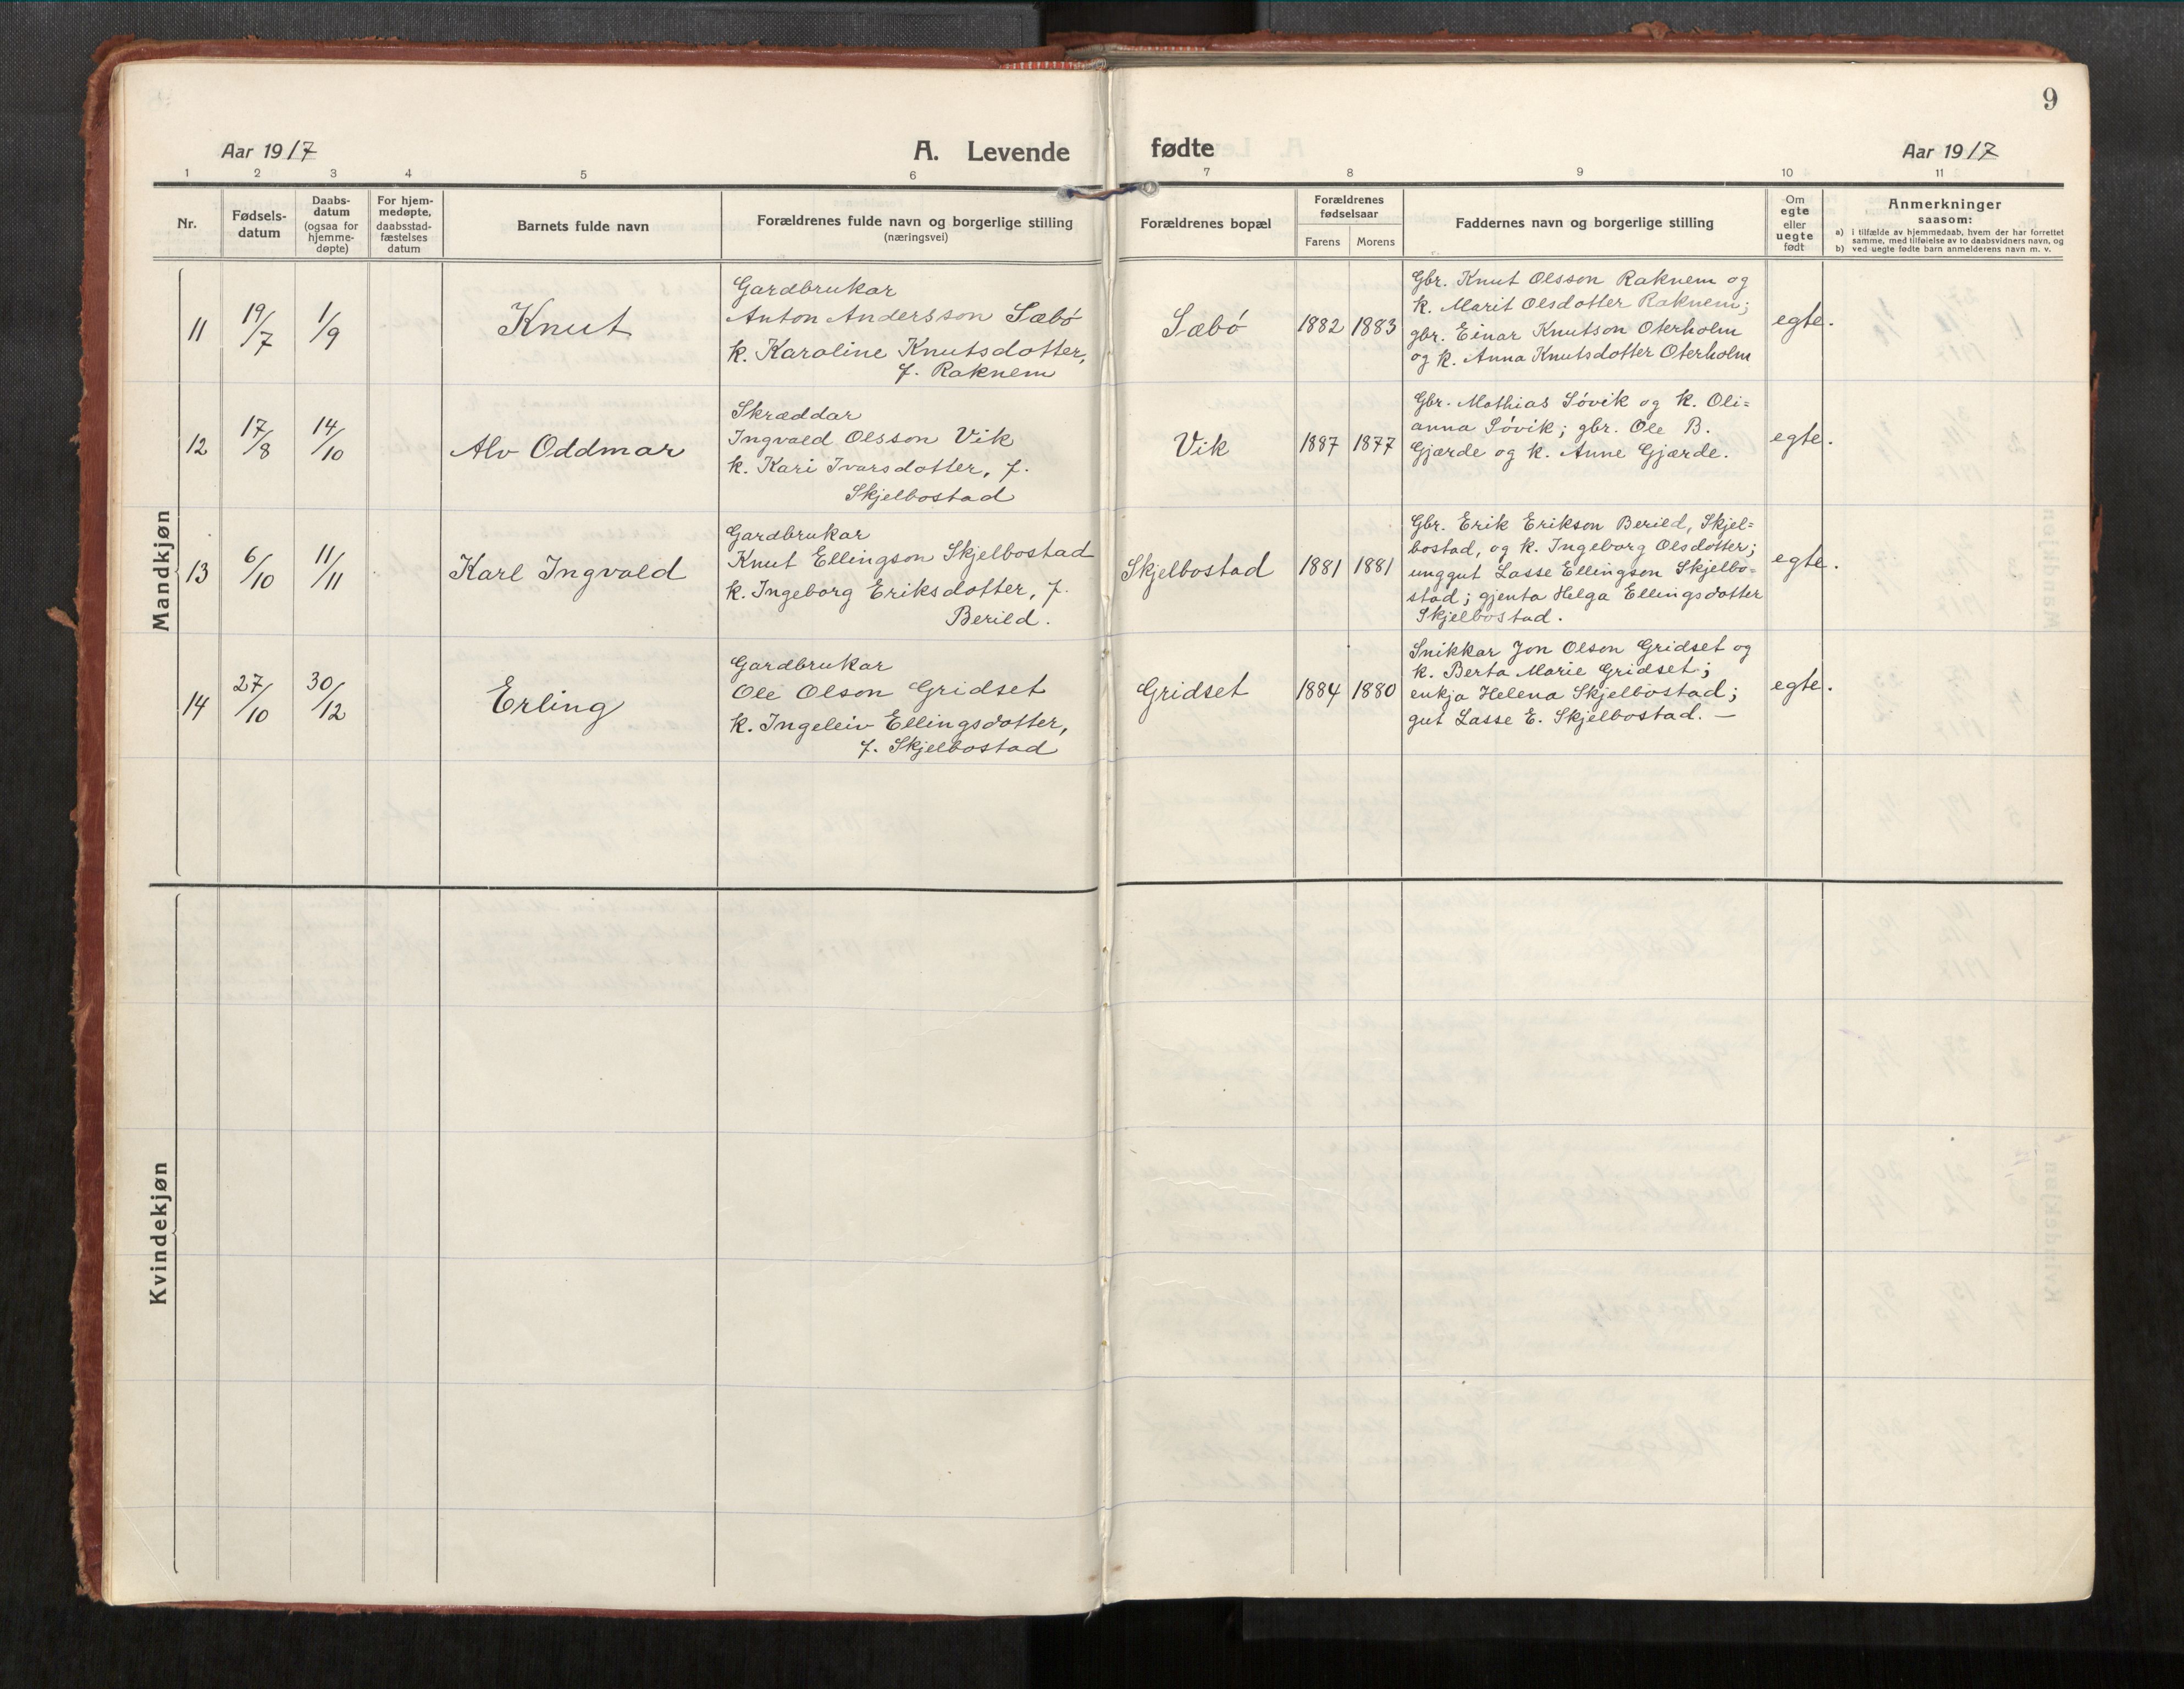 9
Aar 1917
A. Levende fødte
Aar 1917
1 2 3 4 5 6 7 8 9 10 11
Nr.
Fødsels-
datum
Daabs-
datum
(ogsaa for
hjemme-
døpte)
For hjem-
medøpte,
daabsstad-
fæstelses
datum
Barnets fulde navn
Forældrenes fulde navn og borgerlige stilling
(næringsvei)
Forældrenes bopæl
Forældrenes
fødselsaar
Farens Morens
Faddernes navn og borgerlige stilling
Om
egte
eller
uegte
født
Anmerkninger
saasom:
a) i tilfælde av hjemmedaab, hvem der har forrettet
samme, med tilføielse av to daabsvidners navn, og
b) ved uegte fødte barn anmelderens navn m. v.
Mandkjøn
11
19/7
1/9
Knut
Gardbrukar
Anton Andersson Sæbö
k. Karoline Knutsdotter,
f. Raknem
Sæbö
1882 1883
Gbr. Knut Olsson Raknem og
k. Marit Olsdotter Raknem;
gbr. Einar Knutson Oterholm
og k. Anna Knutsdotter Oterholm
egte.
12
17/8
14/10
Alv Oddmar
Skræddar
Ingvald Olsson Vik
k. Kari Ivarsdotter, f.
Skjelbostad
Vik
1887 1877
Gbr. Mathias Sövik og k. Oli=
anna Sövik; gbr. Ole B.
Gjærde og k. Anne Gjærde.
egte.
13
6/10
11/11
Karl Ingvald
Gardbrukar
Knut Ellingson Skjelbostad
k. Ingeborg Eriksdotter, f.
Berild.
Skjelbostad
1881 1881
Gbr. Erik Erikson Berild, Skjel=
bostad, og k. Ingeborg Olsdotter;
unggut Lasse Ellingson Skjelbo=
stad; gjenta Helga Ellingsdotter
Skjelbostad.
egte.
14
27/10
30/12
Erling
Gardbrukar
Ole Olson Gridset
k. Ingeleiv Ellingsdotter,
f. Skjelbostad
Gridset
1884 1880
Snikkar Jon Olson Gridset og
k. Berta Marie Gridset;
enkja Helena Skjelbostad;
gut Lasse E. Skjelbostad. —
egte.
Kvindekjøn